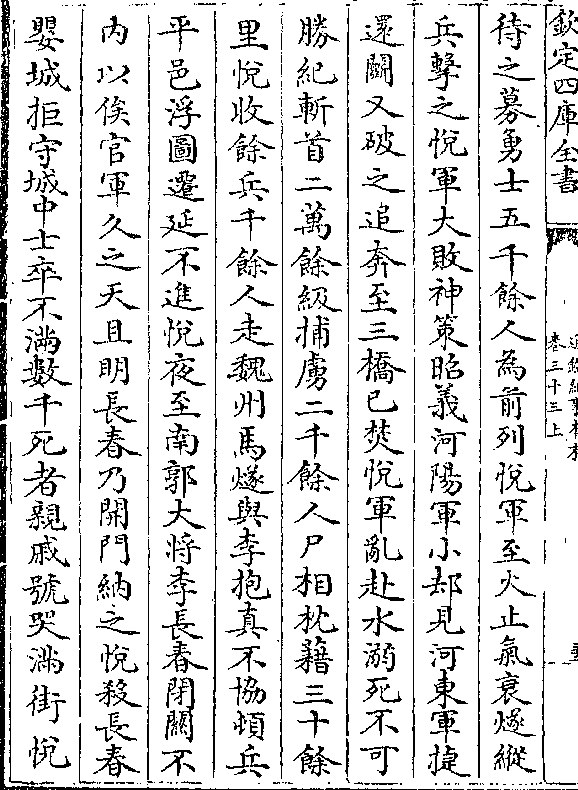 欽定四庫全書
卷三十三上
待之募勇士五千餘人為前列悅軍至火止氣衰燧縱
兵擊之悅軍大敗神策昭義河陽軍小却見河東軍捷
還鬭又破之追奔至三橋已焚悅軍亂赴水溺死不可
勝紀斬首二萬餘級捕虜二千餘人尸相枕藉三十餘
里悅收餘兵千餘人走魏州馬燧與李抱真不協頓兵
平邑浮圖遷延不進悅夜至南郭大將李長春閉關不
内以俟官軍久之天且明長春乃開門納之悅殺長春
嬰城拒守城中士卒不滿數千死者親戚號哭滿街悅